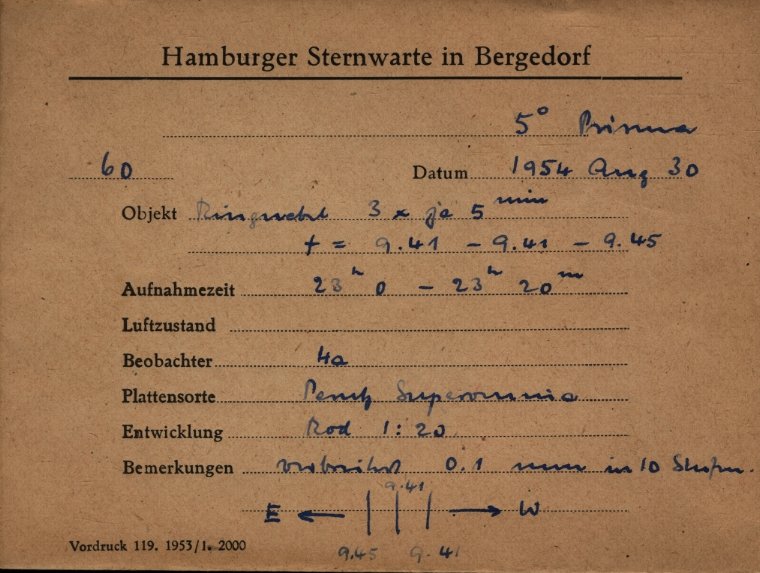 Hamburger Sternwarte in Bergedorf
5° Prisma
60 Datum 1954 Aug 30
Objekt Ringnebel 3 x je 5 min
f = 9.41 – 9.41 – 9.45
Aufnahmezeit 23ʰ 0 – 23ʰ 20ᵐ
Luftzustand
Beobachter
Plattensorte Perutz Superomnia
Entwicklung Rod 1:20
Bemerkungen verbreitert 0.1 mm in 10 Stufen.
9.41
E ← | | | → W
9.45 9.41
Vordruck 119. 1953/1. 2000